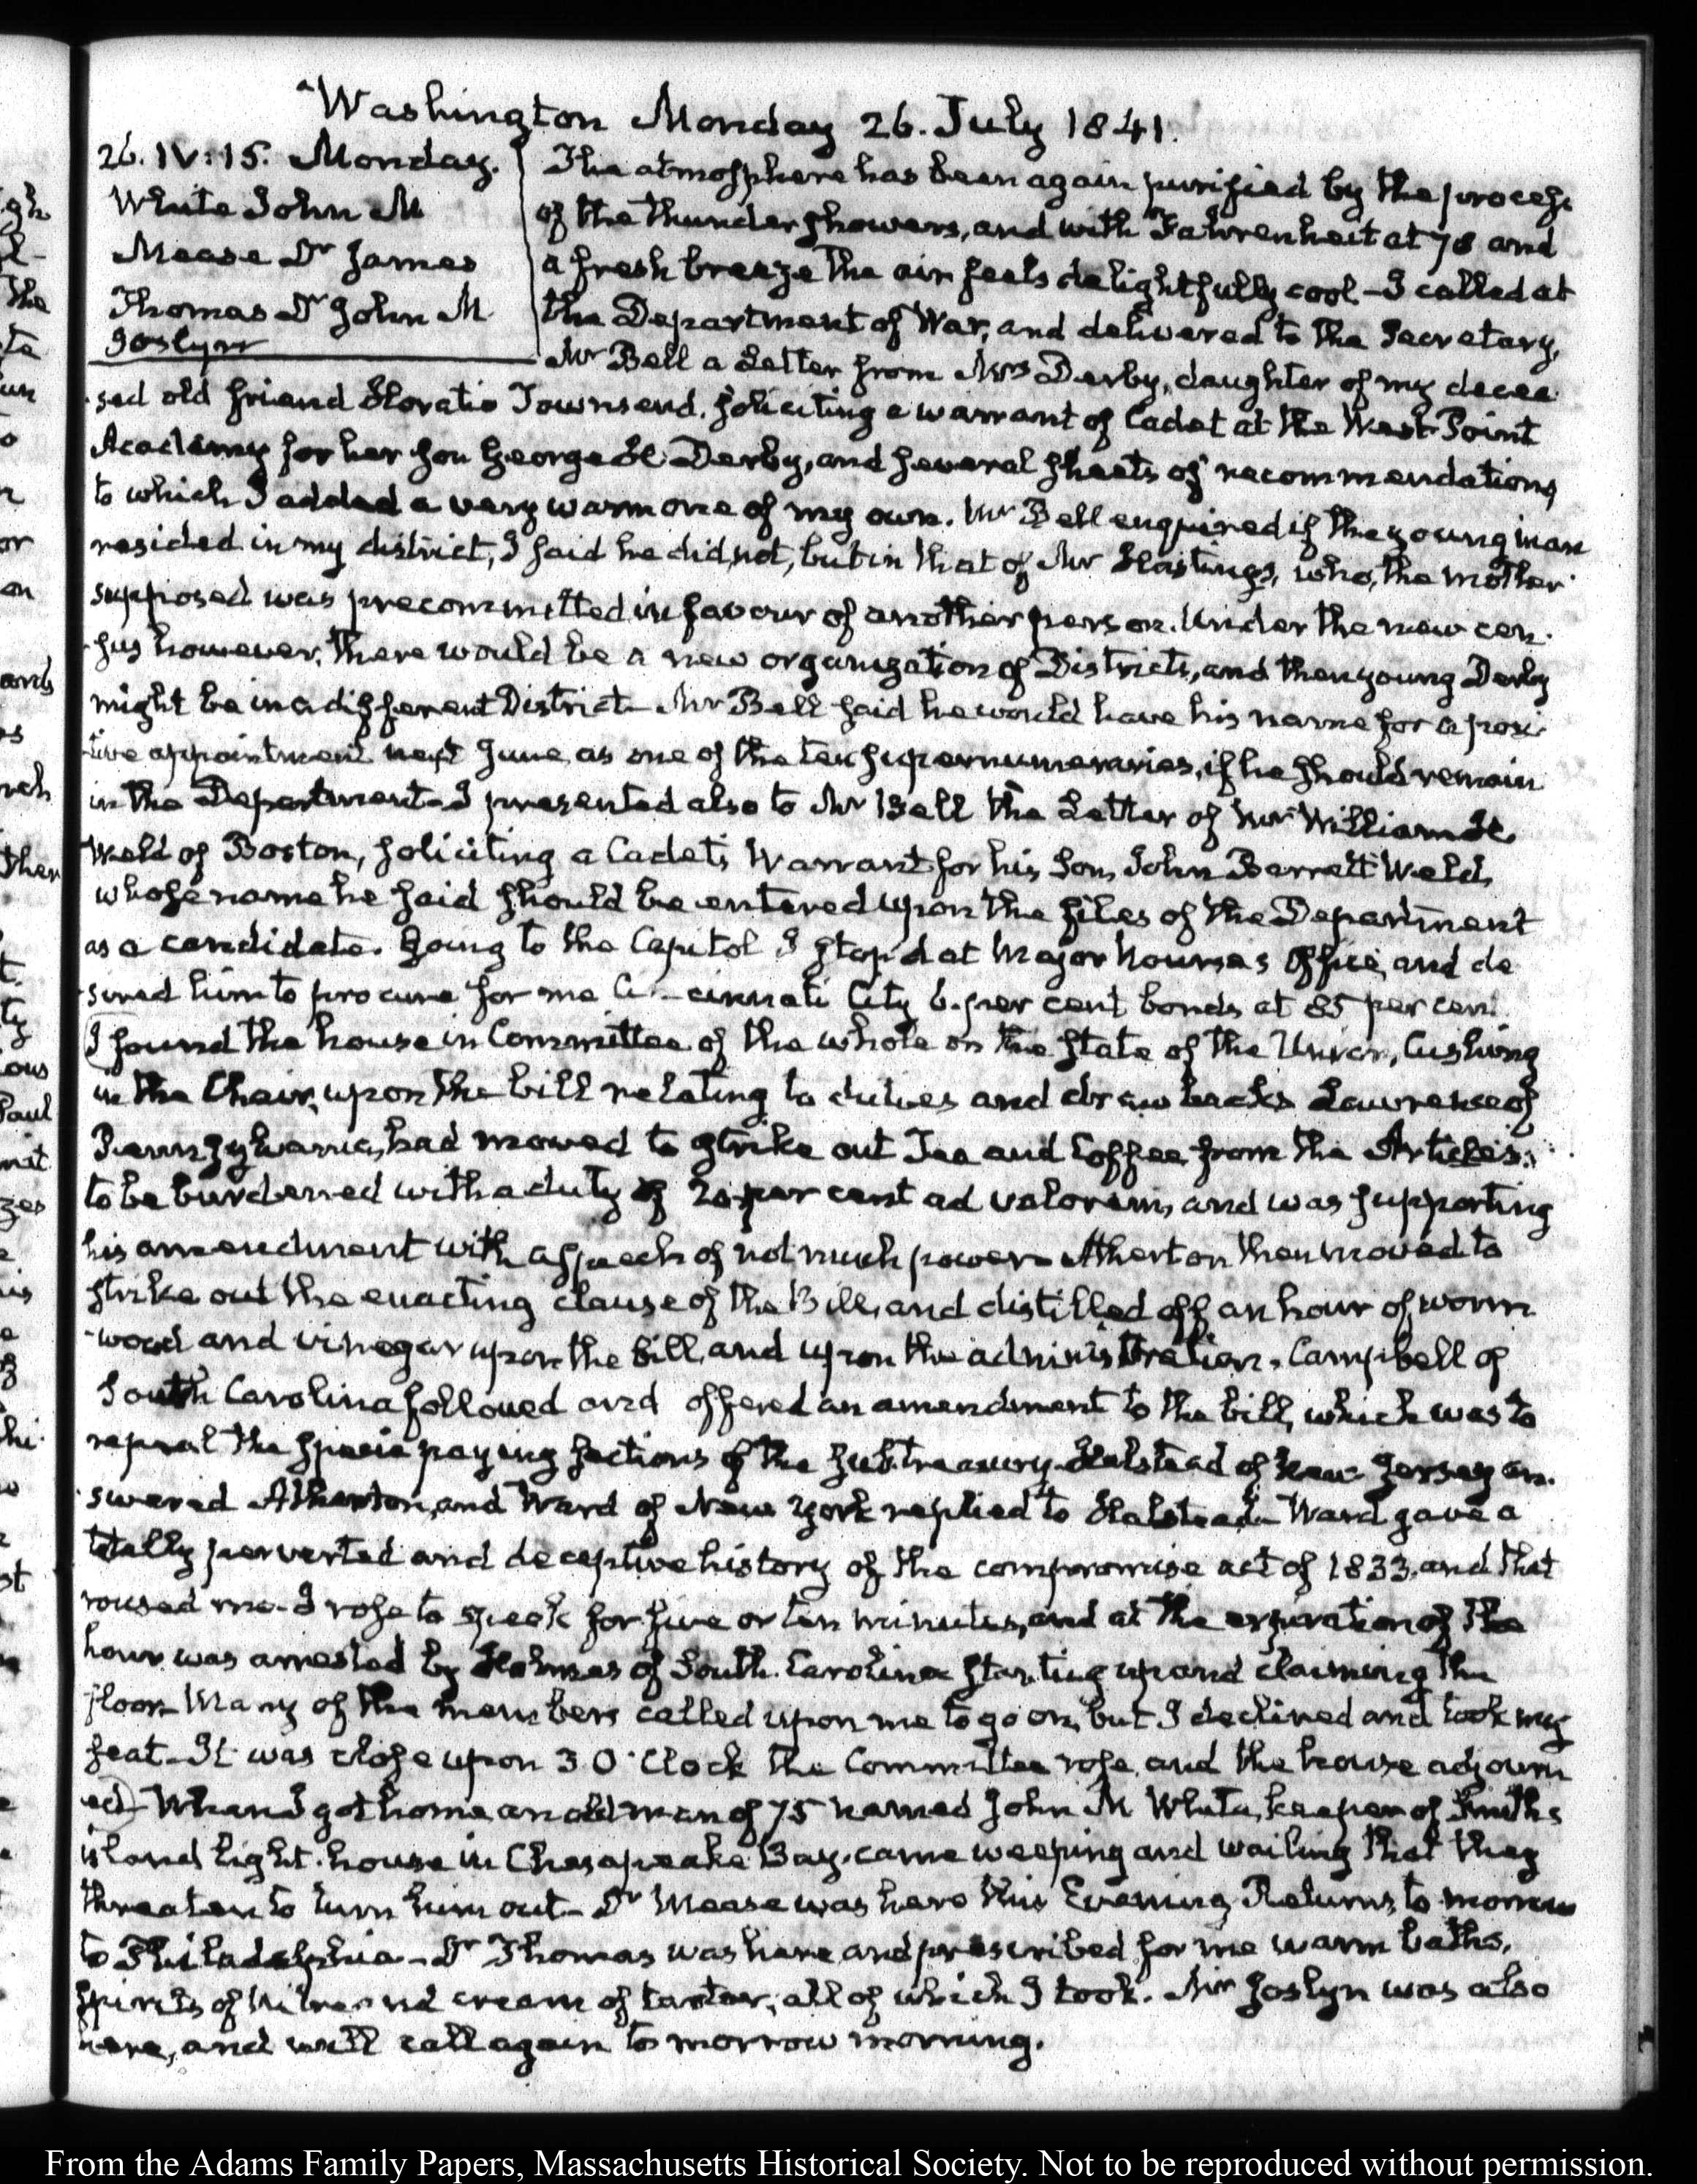 Washington Monday 26. July 1841.
26. IV:15. Monday.
White John M
Mease Dr James
Thomas Dr John M
Joslyn
The atmosphere has been again purified by the process
of the thunder showers, and with Fahrenheit at 78 and
a fresh breeze the air feels delightfully cool – I called at
the Department of War, and delivered to the Secretary,
Mr Bell a Letter from Mrs Derby, daughter of my decea
sed old friend Horatio Townsend, soliciting a warrant of Cadet at the West-Point
Academy for her son George H Derby, and several sheets of recommendations
to which I added a very warm one of my own. Mr Bell enquired if the young man
resided in my district, I said he did, not, but in that of Mr Hastings, who, the mother
supposed was precommitted in favour of another person. Under the new cen-
-sus however, there would be a new organization of Districts, and then young Derby
might be in a different District – Mr Bell said he would have his name for a posi-
-tive appointment next June, as one of the ten supernumeraries, if he should remain
in the Department – I presented also to Mr Bell the Letter of Mr William H.
Weld of Boston, soliciting a Cadet's Warrant for his Son, John Barrett Weld,
whose name he said should be entered upon the files of the Department
as a candidate. Going to the Capitol I stop'd at Major Nourse's Office, and de
-sired him to procure for me Cincinnati City 6. per cent bonds at 85 per cent.
I found the house in Committee of the whole on the state of the Union, Cushing
in the Chair, upon the bill relating to duties and draw backs Lawrence of
Pennsylvania, had moved to strike out Tea and Coffee from the Articles
to be burdened with a duty of 20 per cent ad valorem, and was supporting
his amendment with a speech of not much power – Atherton then moved to
strike out the enacting clause of the Bill, and distilled off an hour of worm
-wood and vinegar upon the bill, and upon the administration. Campbell of
South Carolina followed and offered an amendment to the bill, which was to
repeal the specie paying sections of the Sub-treasury – Halstead of New Jersey an-
swered Atherton, and Ward of New York replied to Halstead – Ward gave a
totally perverted and deceptive history of the compromise act of 1833. and that
roused me – I rose to speak for five or ten minutes, and at the expiration of the
hour was arrested by Holmes of South Carolina starting up and claiming the
floor – Many of the members called upon me to go on, but I declined and took my
seat – It was close upon 3 O'Clock the Committee rose, and the house adjourn
ed) – When I got home, an old man of 75 named John M White, keeper of Smith's
island light-house in Chesapeake Bay, came weeping and wailing that they
threaten to turn him out – Dr Mease was here this Evening, Returns to morrow
to Philadelphia – Dr Thomas was here and prescribed for me warm baths,
spirits of Nitre and cream of tartar, all of which I took. Mr Joslyn was also
here, and will call again to morrow morning.
From the Adams Family Papers, Massachusetts Historical Society. Not to be reproduced without permission.